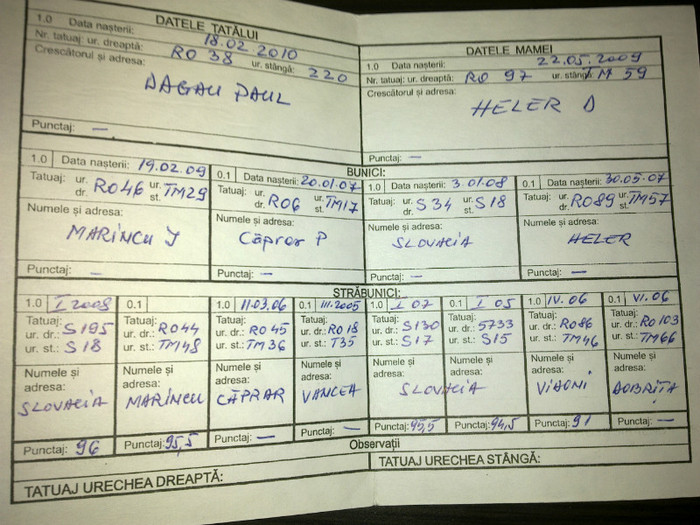 DATELE TATĂLUI
1.0 Data nașterii: 18.02.2010
Nr. tatuaj: ur. dreaptă: RO 38 ur. stângă: 220
Crescătorul și adresa:
DAGAU PAUL
Punctaj: —
DATELE MAMEI
1.0 Data nașterii: 22.05.2009
Nr. tatuaj: ur. dreaptă: RO 97 ur. stângă: TM 59
Crescătorul și adresa:
HELER D
Punctaj: —
BUNICI:
1.0 Data nașterii: 19.02.09
Tatuaj: ur. dr. RO46 ur. st. TM29
Numele și adresa:
MARINCU J
Punctaj: —
0.1 Data nașterii: 20.01.07
Tatuaj: ur. dr. RO6 ur. st. TM17
Numele și adresa:
Căprar P
Punctaj: —
1.0 Data nașterii: 3.01.08
Tatuaj: ur. dr. S34 ur. st. S18
Numele și adresa:
SLOVACIA
Punctaj: —
0.1 Data nașterii: 30.05.07
Tatuaj: ur. dr. RO89 ur. st. TM57
Numele și adresa:
HELER
Punctaj: —
STRĂBUNICI:
1.0 I 2008
Tatuaj:
ur. dr.: S195
ur. st.: S18
Numele și
adresa:
SLOVACIA
Punctaj: 96
0.1
Tatuaj:
ur. dr.: RO44
ur. st.: TM48
Numele și
adresa:
MARINCU
Punctaj: 95,5
1.0 11.03.06
Tatuaj:
ur. dr.: RO45
ur. st.: TM36
Numele și
adresa:
CĂPRAR
Punctaj: —
0.1 III.2005
Tatuaj:
ur. dr.: RO18
ur. st.: T35
Numele și
adresa:
VANCEA
Punctaj: —
1.0 I 07
Tatuaj:
ur. dr.: S130
ur. st.: S17
Numele și
adresa:
SLOVACIA
Punctaj: 95,5
0.1 I 05
Tatuaj:
ur. dr.: 5733
ur. st.: S15
Numele și
adresa:
Punctaj: 94,5
1.0 IV.06
Tatuaj:
ur. dr.: RO86
ur. st.: TM46
Numele și
adresa:
Punctaj: 91
0.1 VI.06
Tatuaj:
ur. dr.: RO103
ur. st.: TM66
Numele și
adresa:
DOBRIȚA
Punctaj: —
Observații
TATUAJ URECHEA DREAPTĂ:
TATUAJ URECHEA STÂNGĂ: